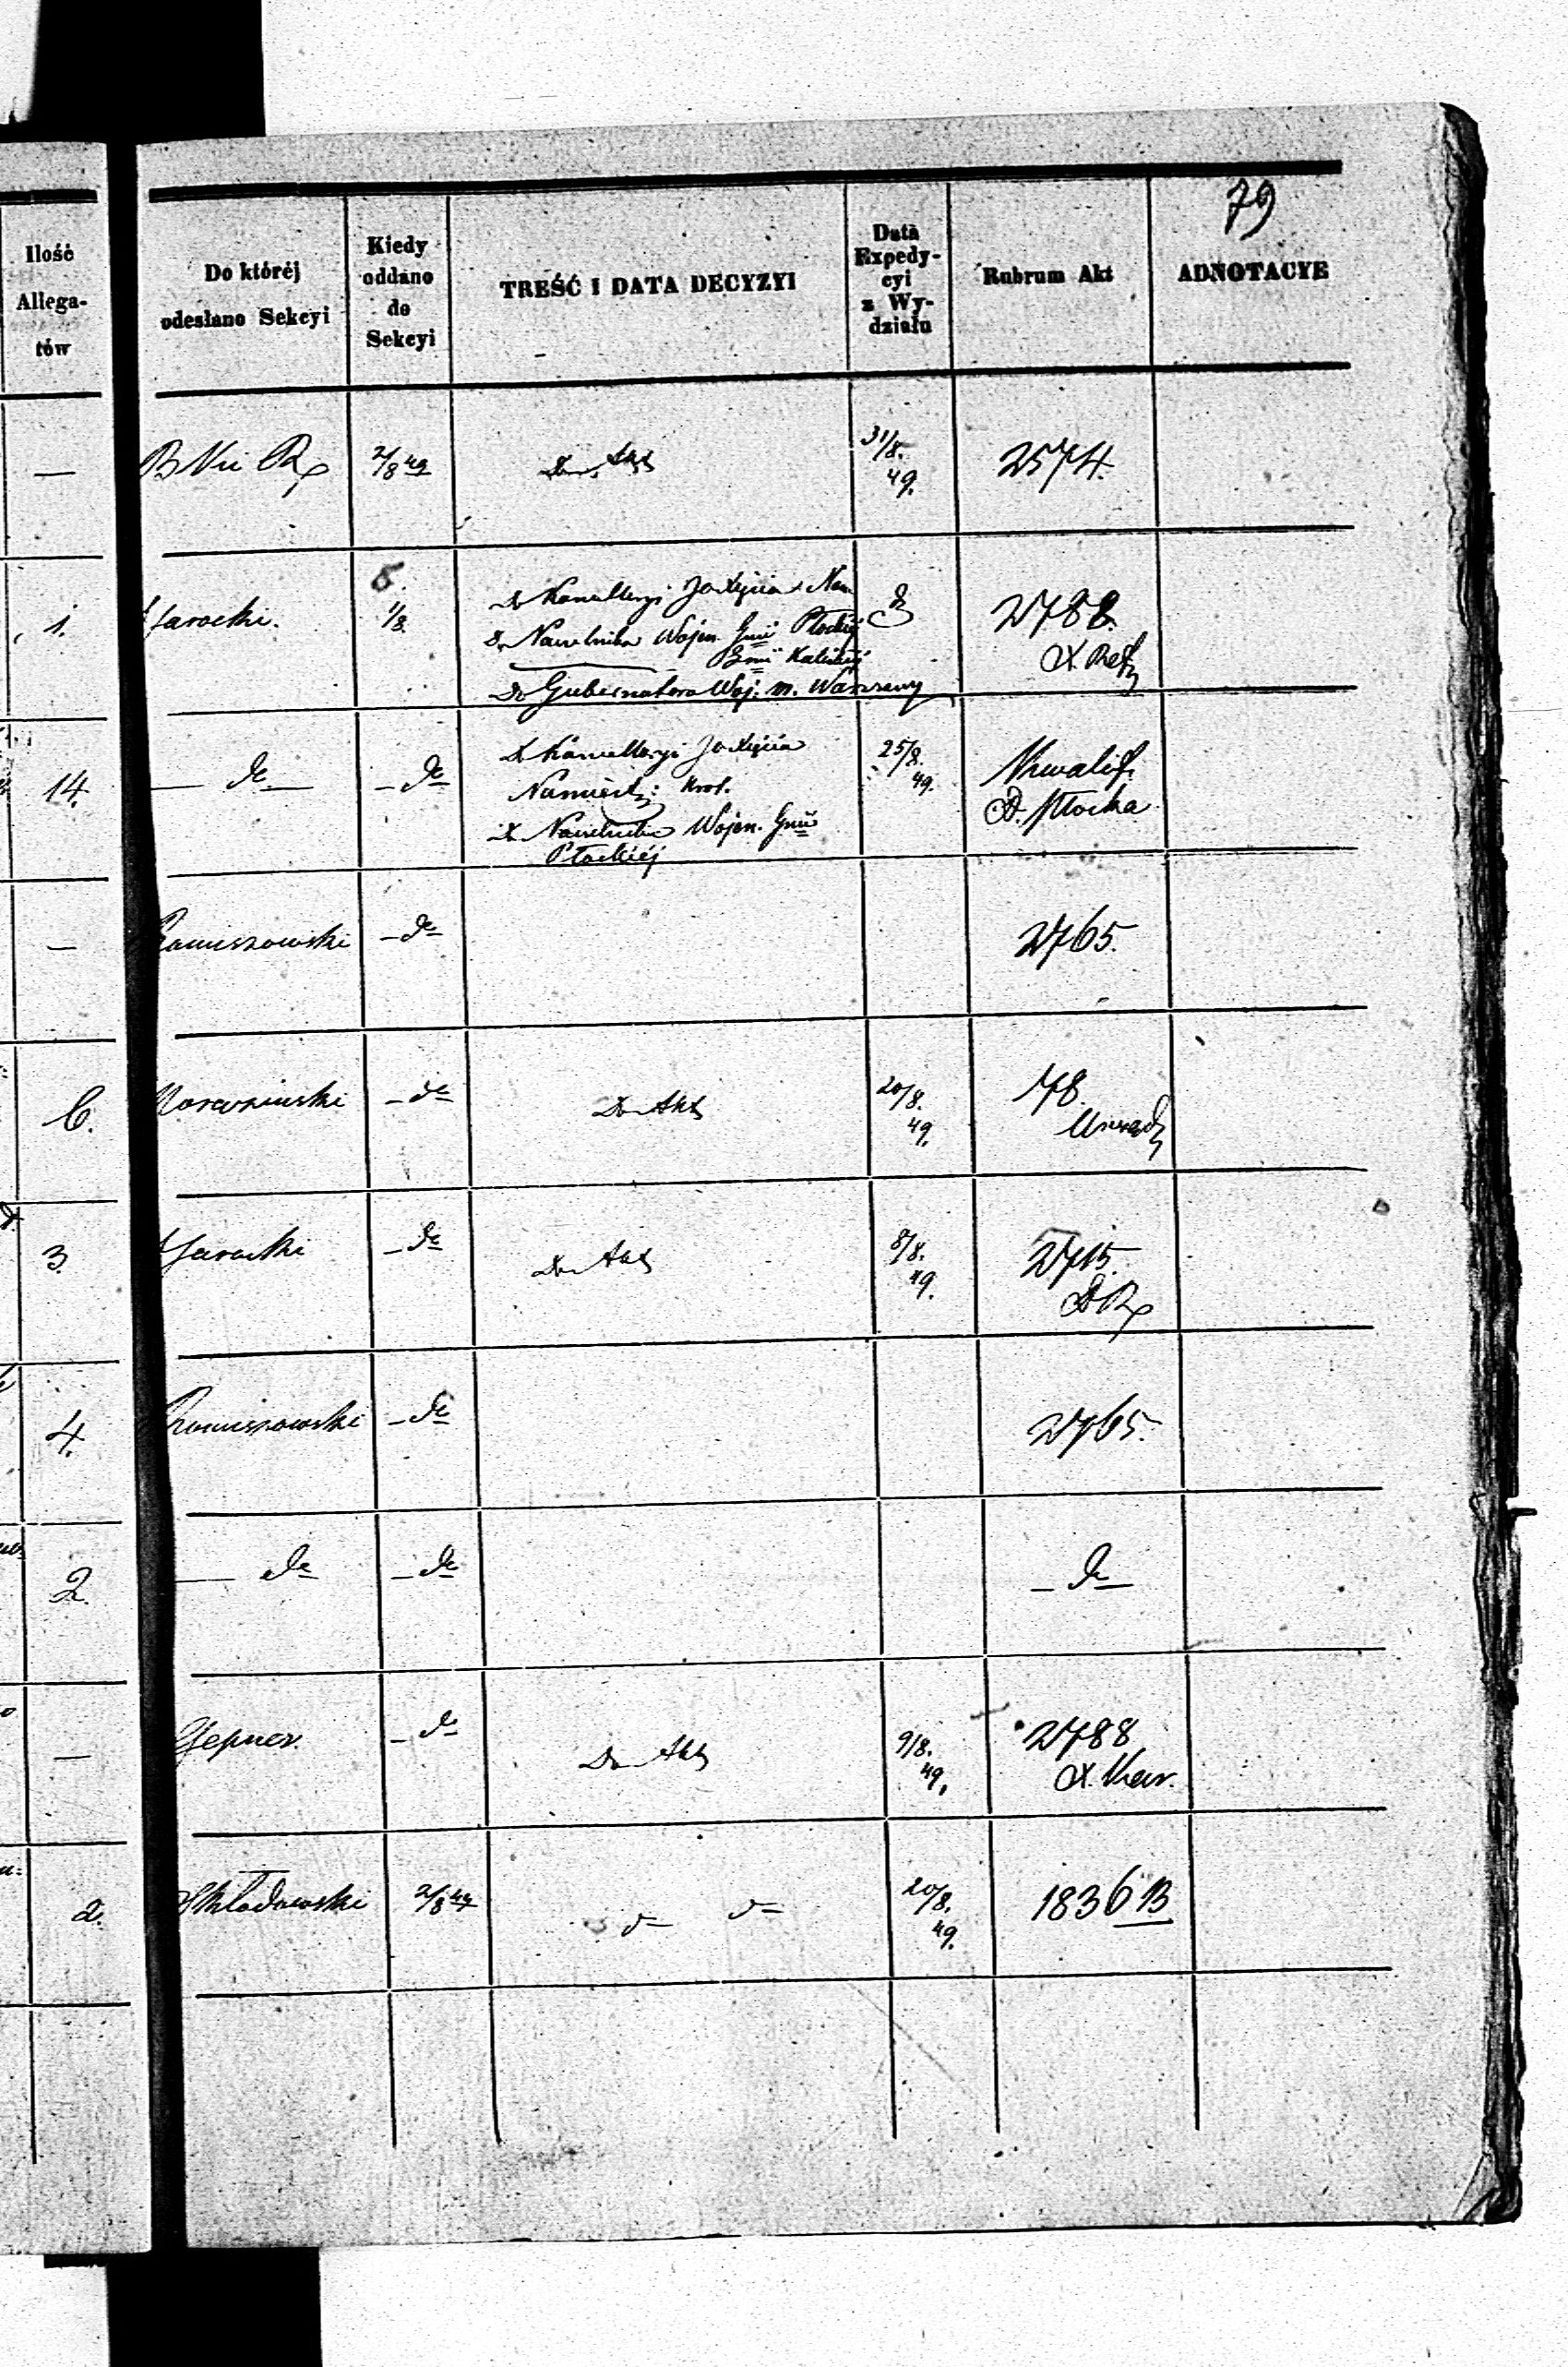 79
Ilość
Allega-
tów
Do któréj
odesłano Sekcyi
Kiedy
oddano
do
Sekcyi
TREŚĆ I DATA DECYZYI
Data
Expedy-
cyi
z Wy-
działu
Rubrum Akt
ADNOTACYE
— 2/8 49 Do Akt 31/8. 49. 2574.
1. Jarocki. 1/8
Do Kancellaryi JO Xięcia Nam
Do Naczelnika Wojen. Gnii Płockiéj
Gnii Kaliskiéj
Do Gubernatora Woj. m. Warszawy
2788.
14. — do — — do
Do Kancellaryi JO Xięcia
Namiest: Król.
Do Naczelnika Wojen. Gnii
Płockiéj
25/8. 49.
Kwalif.
Płocka
— Romiszowski — do 2765.
6. — do Do Akt 20/8. 49. 78.
3. Jarocki — do Do Akt 8/8. 49. 2715.
4. Romiszowski — do 2765.
2. — do — do — do
— Gepner. — do Do Akt 9/8. 49. 2788
2. Skłodowski 2/8 49 20/8. 49. 1836 B